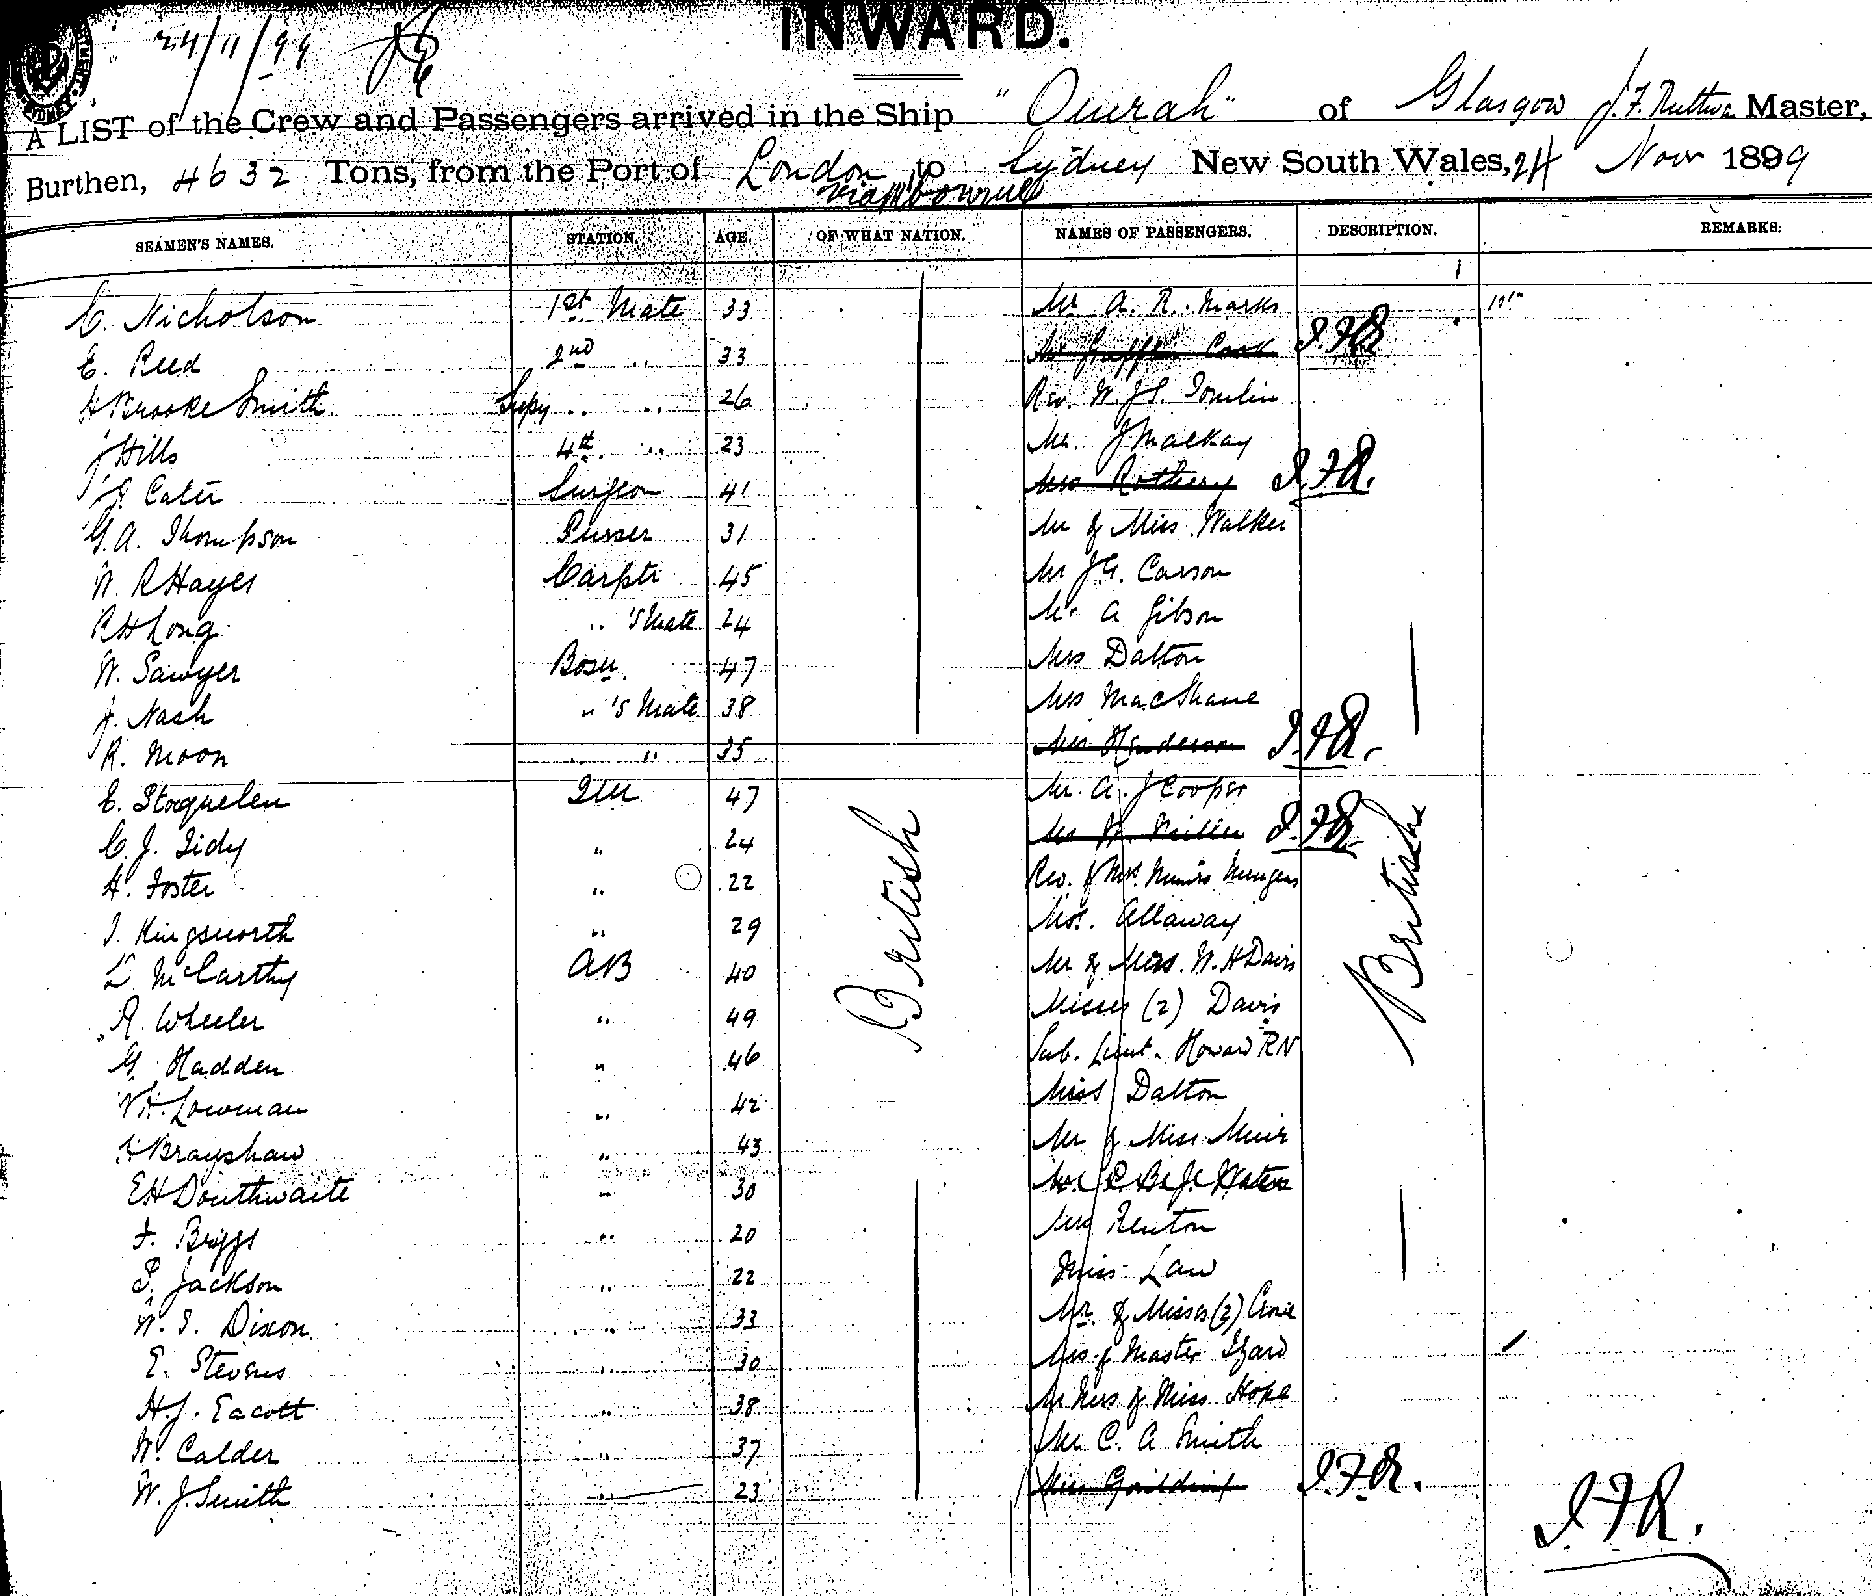 INWARD.
24/11/99
A LIST of the Crew and Passengers arrived in the Ship "Omrah" of Glasgow J. F. Ruthven Master,
Burthen, 4632 Tons, from the Port of London to Sydney New South Wales, 24 Novr 1899
via Melbourne
SEAMEN'S NAMES. STATION. AGE. OF WHAT NATION. NAMES OF PASSENGERS. DESCRIPTION. REMARKS:
C. Nicholson 1st Mate 33 Mr A. R. Marks
E. Reed 2nd .. 33 Cook J.F.R
H Brooke Smith Supy .. .. 26 Rev. W. J. S. Tomlin
J Hills 4th .. 23 Mr. J Mackay
J. Cater Surgeon 41 Mrs Rothery J.F.R.
G. A. Thompson Purser 31 Mr & Miss Walker
W. R Hayes Carptr 45 Mr J G. Carson
R H Long .. 's Mate 24 Mr. A Gibson
W. Sawyer Bosn 47 Mrs Dalton
J. Nash .. 's Mate 38 Mrs MacShane
R. Moon .. 35 Mrs Henderson J.F.R.
E. Stoequelen QM 47 Mr. A. J Cooper
C. J. Tidy " 24 Mr W. Miller J.F.R.
A. Foster " 22 Rev. & Mrs
J. Kingsnorth " 29 Allaway
McCarthy AB 40 Mr & Mrs. W. H Davis
R. Wheeler " 49 Misses (2) Davis
G. Hadden " 46 Sub. Lieut. Howard RN
W H. Lowman " 42 Miss Dalton
H Brayshaw " 43 Mr & Miss Muir
E H Douthwaite " 30 Waters
F. Briggs " 20 Renton
P. Jackson " 22 Miss Law
W. J. Dixon " 33 & Misses (2)
E. Stevens " 30 Mrs & Master Izard
H. J. Eacott " 38 Mr Mrs & Miss Hope
W. Calder " 37 Mr C. A Smith
W. J. Smith " 23 Miss Goulding J.F.R.
British
British
J.F.R.